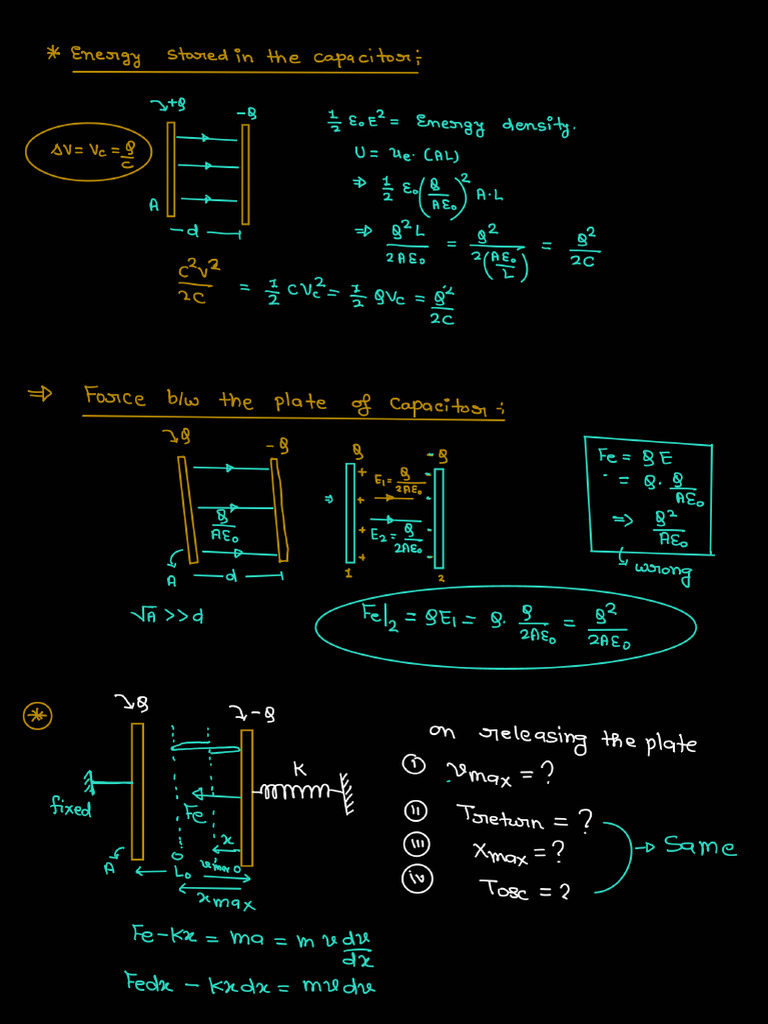 * Energy stored in the capacitor :
+Q
-Q
ΔV = Vc = Q/C
A
d
1/2 ε₀E² = Energy density.
U = ue. (AL)
⇒ 1/2 ε₀(Q/Aε₀)² A.L
⇒ Q²L/2Aε₀ = Q²/2(Aε₀/L) = Q²/2C
C²V²/2C = 1/2 CVc² = 1/2 QVc = Q²/2C
⇒ Force b/w the plate of capacitor :
Q
-Q
Q/Aε₀
A
d
√A >> d
⇒
Q
-Q
+
+
+
+
-
-
-
-
E₁ = Q/2Aε₀
E₂ = Q/2Aε₀
1
2
Fe = QE
= Q. Q/Aε₀
⇒ Q²/Aε₀
wrong
Fe|₂ = QE₁ = Q. Q/2Aε₀ = Q²/2Aε₀
*
Q
-Q
fixed
K
Fe
x
A
0
L₀
vmax
0
xmax
on releasing the plate
(i) vmax = ?
(ii) Treturn = ?
(iii) xmax = ?
(iv) Tosc = ?
→ Same
Fe - kx = ma = m v dv/dx
Fedx - kxdx = mvdv